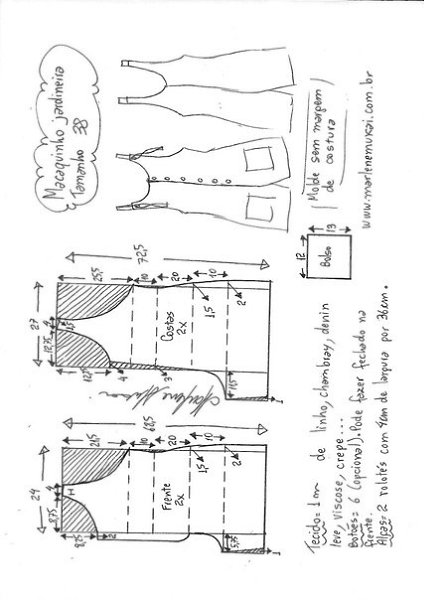 Macaquinho jardineira
Tamanho 38
72,5
25,5
10
20
10
27
4
12,75
1,5
12,5
4
3
1,5
2
11,5
1
Costas
2x
Marlene Mukai
24
4
8,75
8,25
2
21,5
10
20
10
1,5
2
5,75
1
Frente
2x
Molde sem margem
de costura
12
13
Bolso
www.marlenemukai.com.br
Tecido= 1 de linho, chambray, denin
leve, viscose, crepe...
Botões= 6 (opcional). Pode fazer fechado na
frente.
Alças= 2 rolotês com 4cm de largura por 36cm.